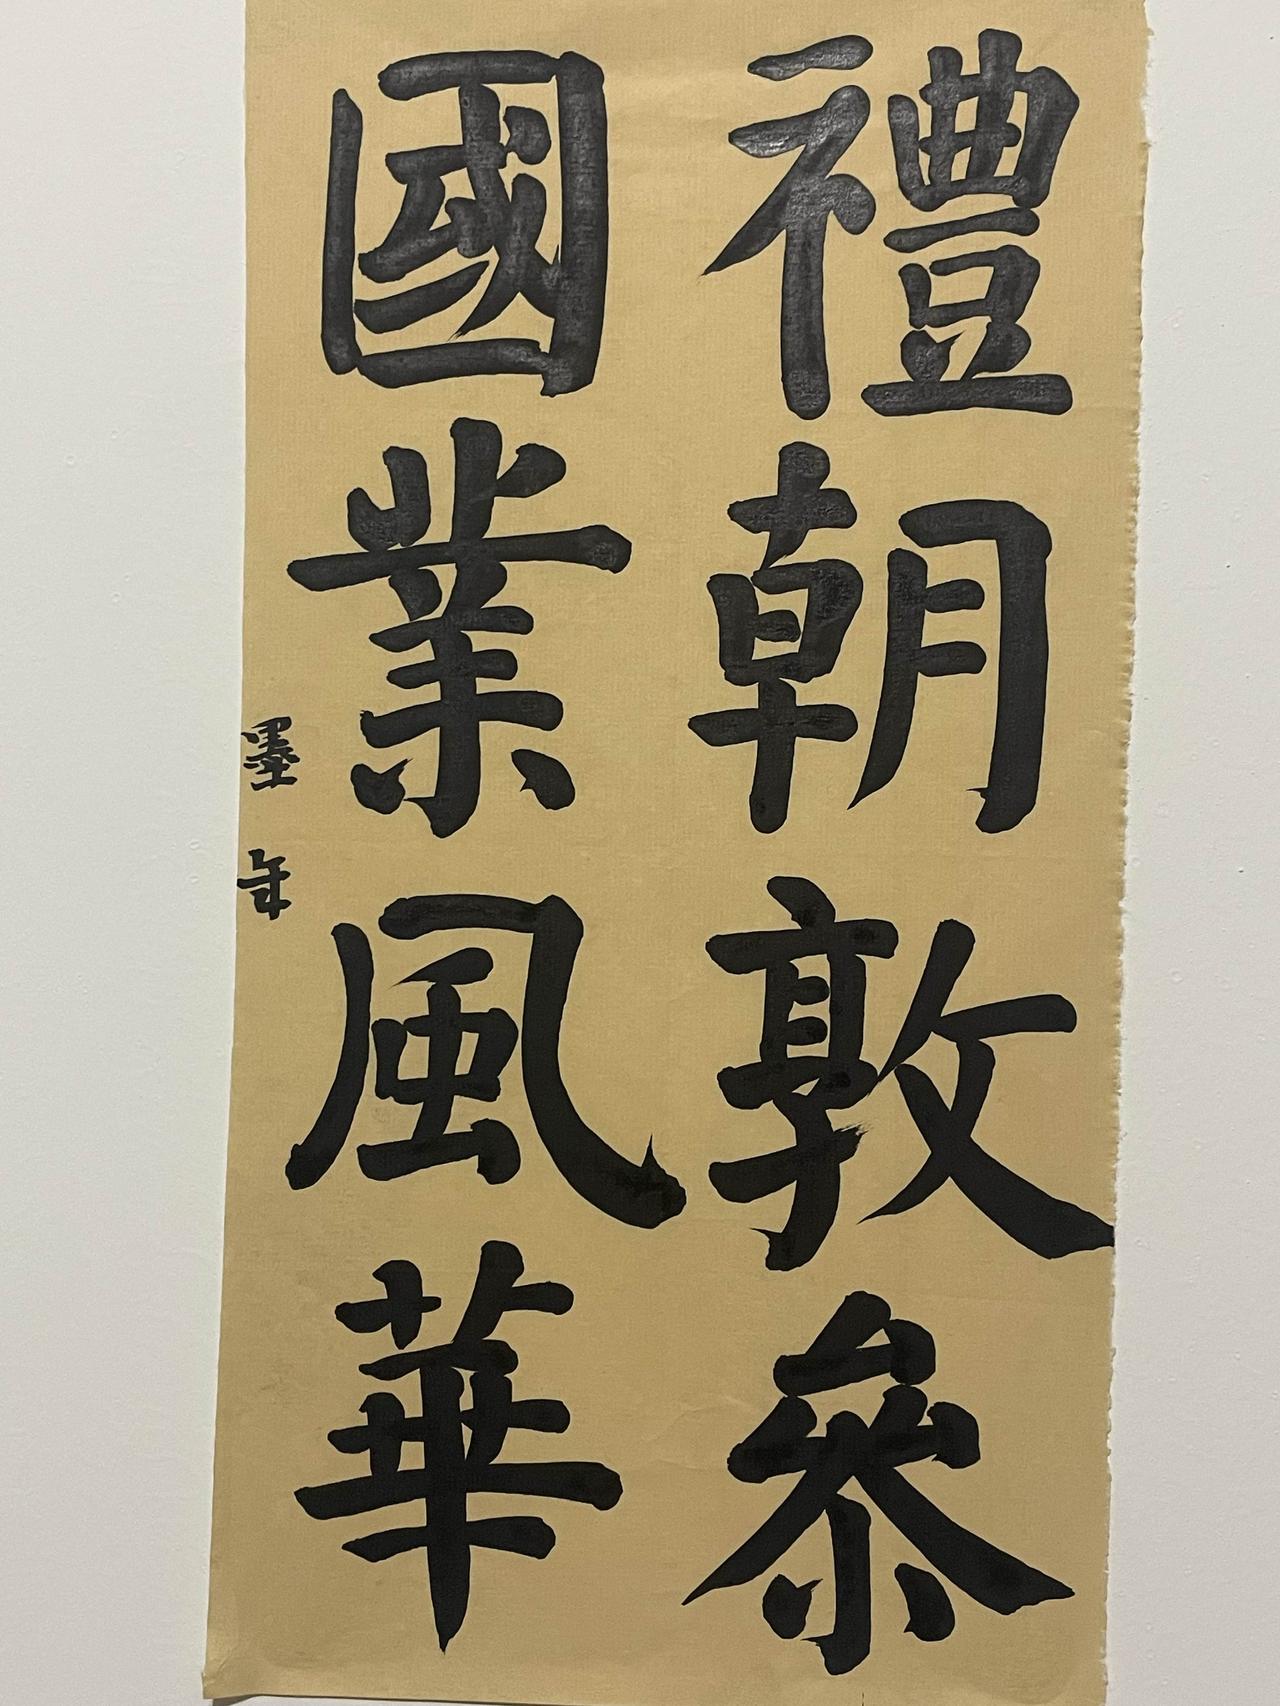 禮朝敦叅
國業風華
墨年